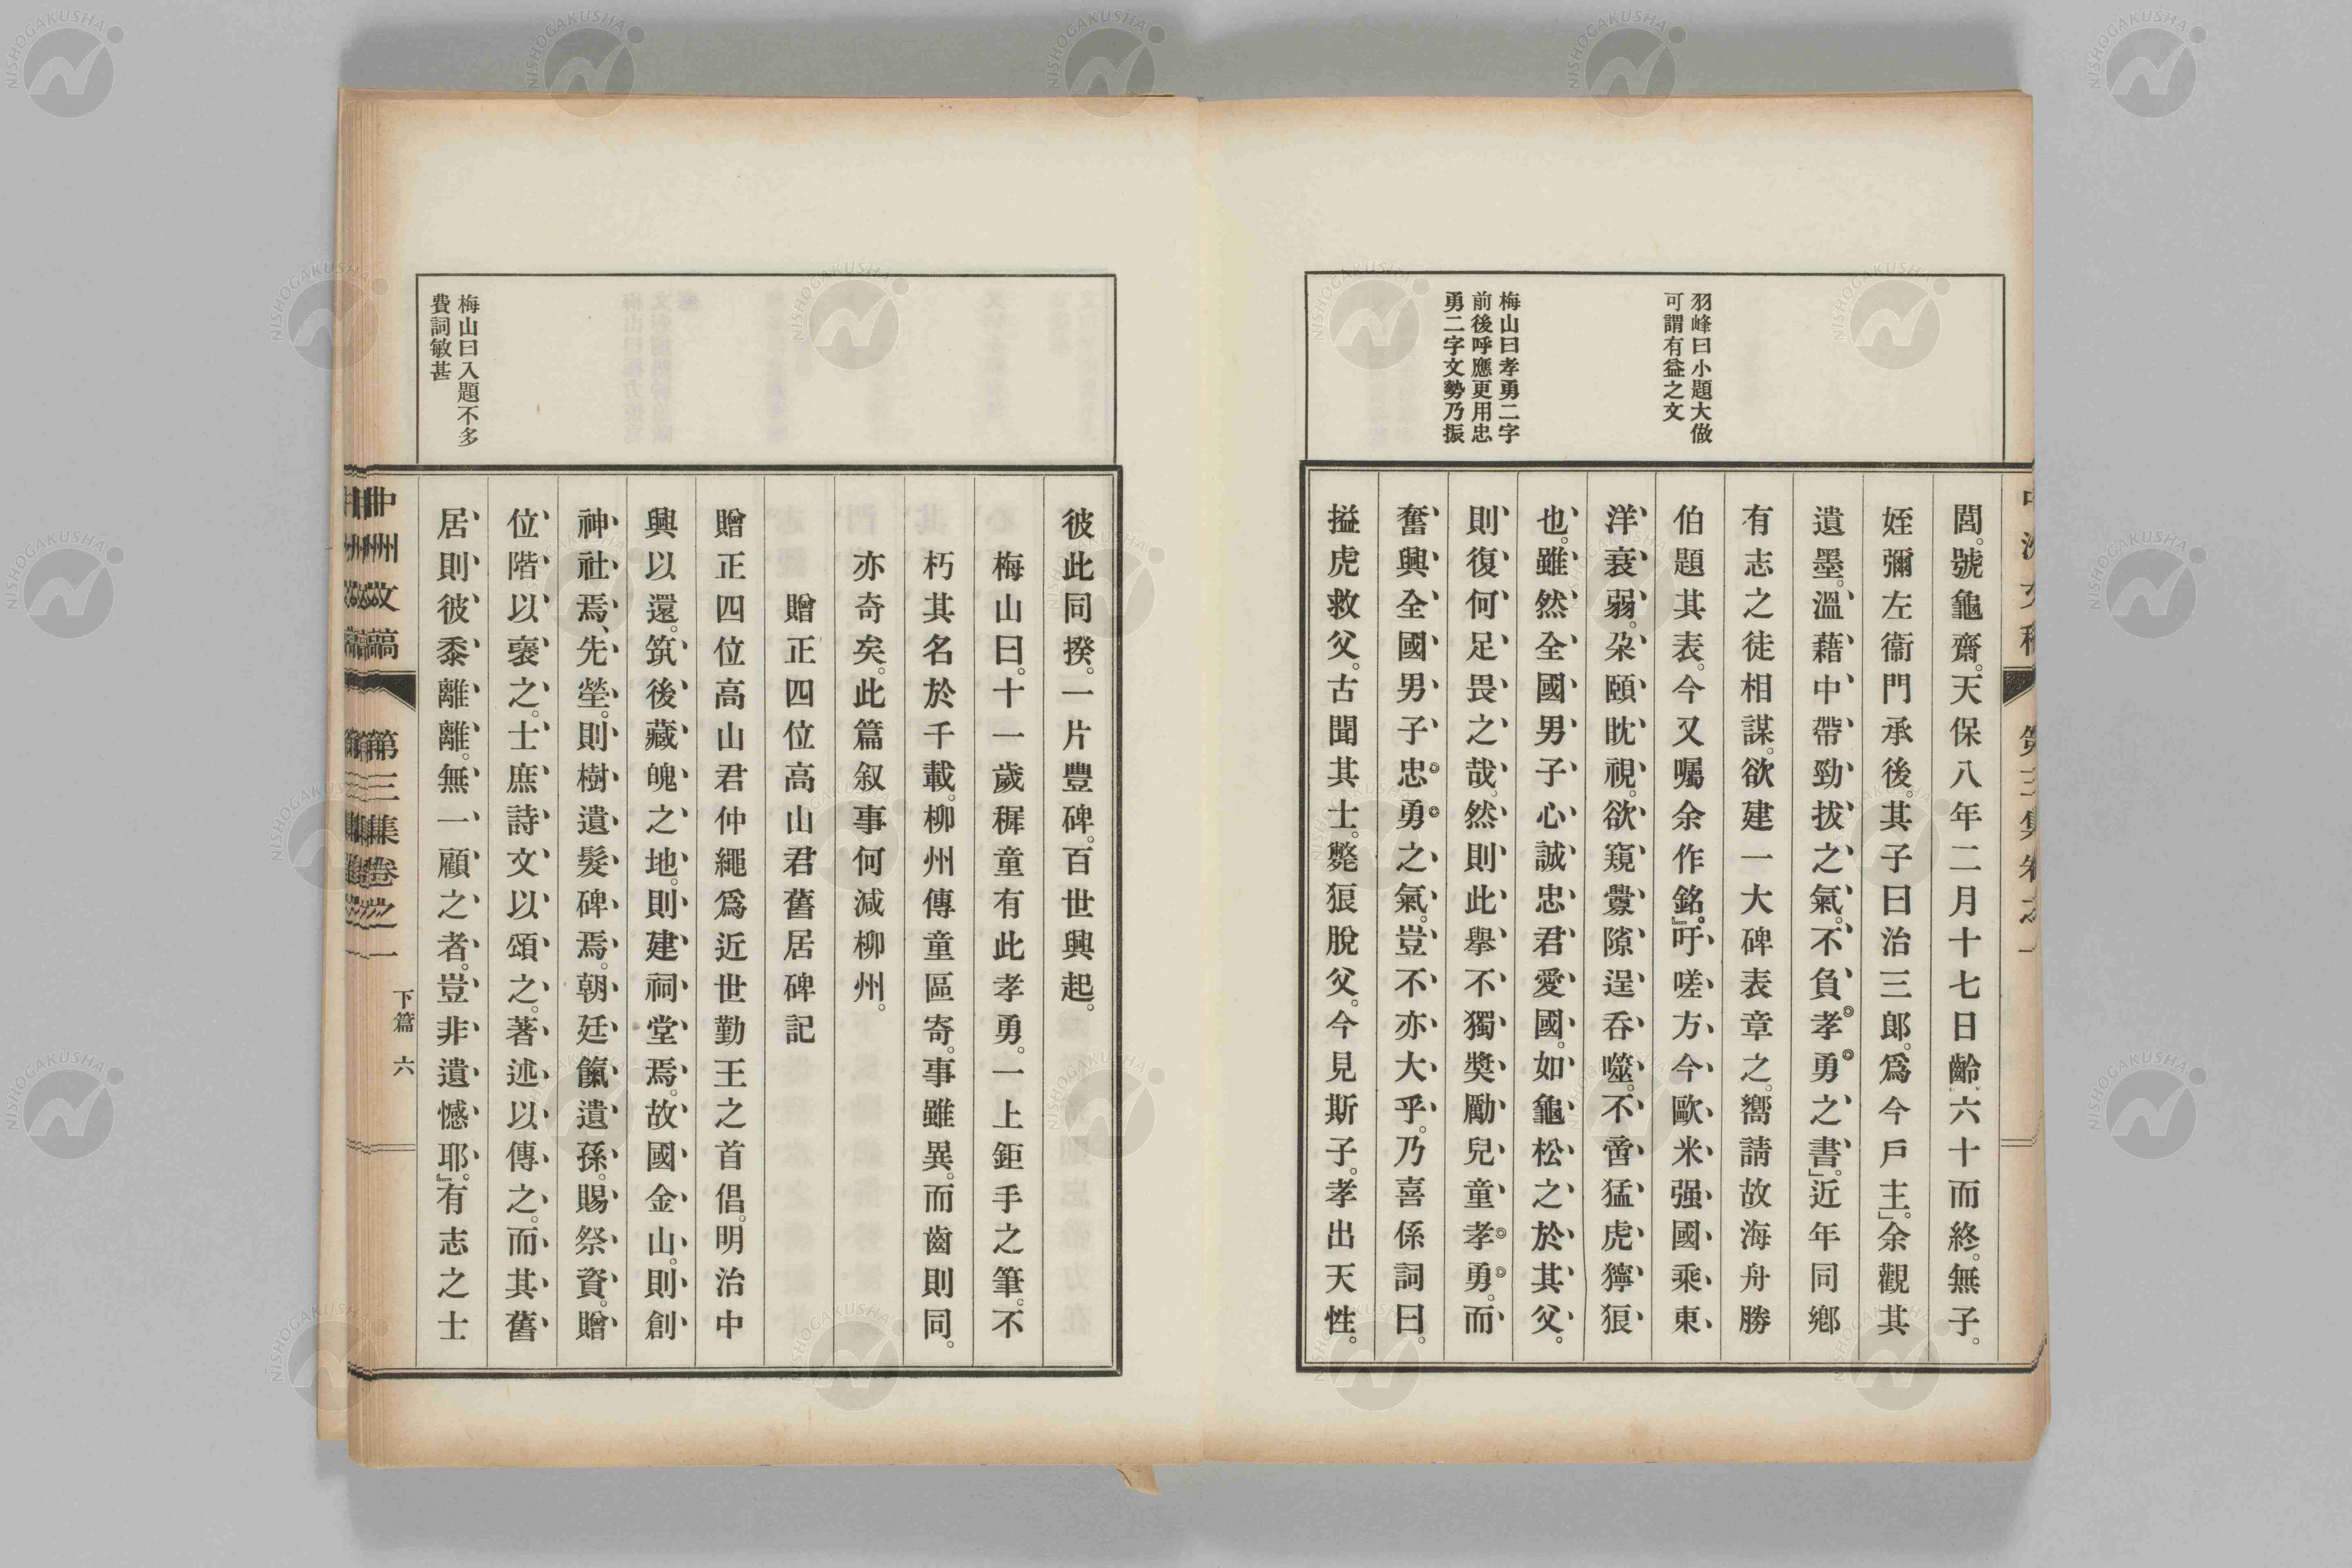 羽峰曰小題大做
可謂有益之文
梅山曰孝勇二字
前後呼應更用忠
勇二字文勢乃振
閭。號龜齋。天保八年二月十七日齡六十而終。無子。
姪彌左衞門承後。其子曰治三郎。爲今戶主。」余觀其
遺墨。溫藉中帶勁拔之氣。不負孝勇之書。」近年同鄕
有志之徒相謀。欲建一大碑表章之。嚮請故海舟勝
伯題其表。今又囑余作銘。」吁嗟方今歐米强國乘東
洋衰弱。朶頤眈視。欲窺釁隙逞呑噬。不啻猛虎獰狼
也。雖然全國男子心誠忠君愛國。如龜松之於其父。
則復何足畏之哉。然則此擧不獨奬勵兒童孝勇。而
奮興全國男子忠勇之氣。豈不亦大乎。乃喜係詞曰。
搤虎救父。古聞其士。斃狼脫父。今見斯子。孝出天性。
彼此同揆。一片豐碑。百世興起。
梅山曰。十一歲穉童有此孝勇。一上鉅手之筆。不
朽其名於千載。柳州傳童區寄。事雖異。而齒則同。
亦奇矣。此篇叙事何減柳州。
贈正四位高山君舊居碑記
贈正四位高山君仲繩爲近世勤王之首倡。明治中
興以還。筑後藏魄之地。則建祠堂焉。故國金山。則創
神社焉、先塋。則樹遺髮碑焉。朝廷餼遺孫。賜祭資。贈
位階以褒之。士庶詩文以頌之。著述以傳之。而其舊
居則彼黍離離。無一顧之者。豈非遺憾耶。」有志之士
梅山曰入題不多
費詞敏甚
中州文稿
第三集卷之一
下篇 六
NISHOGAKUSHA